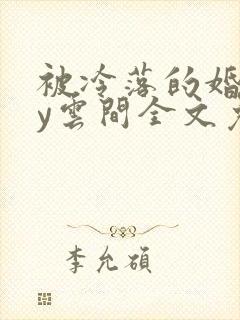 被冷落的婚
y雲間全文
李允碩